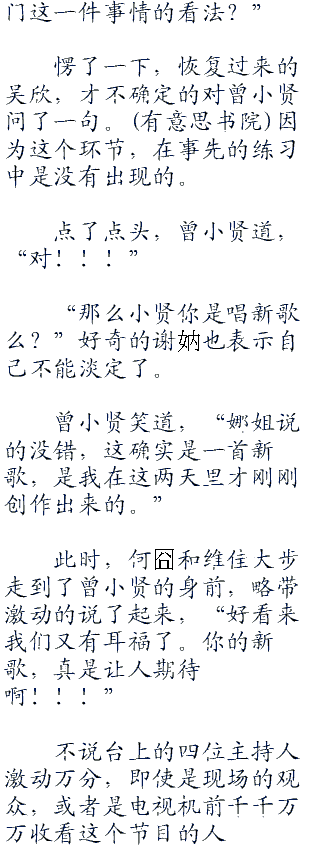 门这一件事情的看法？”
愣了一下，恢复过来的
吴欣，才不确定的对曾小贤
问了一句。(有意思书院)因
为这个环节，在事先的练习
中是没有出现的。
点了点头，曾小贤道，
“对！！！”
“那么小贤你是唱新歌
么？”好奇的谢妠也表示自
己不能淡定了。
曾小贤笑道，“娜姐说
的没错，这确实是一首新
歌，是我在这两天里才刚刚
创作出来的。”
此时，何囧和维佳大步
走到了曾小贤的身前，略带
激动的说了起来，“好看来
我们又有耳福了。你的新
歌，真是让人期待
啊！！！”
不说台上的四位主持人
激动万分，即使是现场的观
众，或者是电视机前千千万
万收看这个节目的人